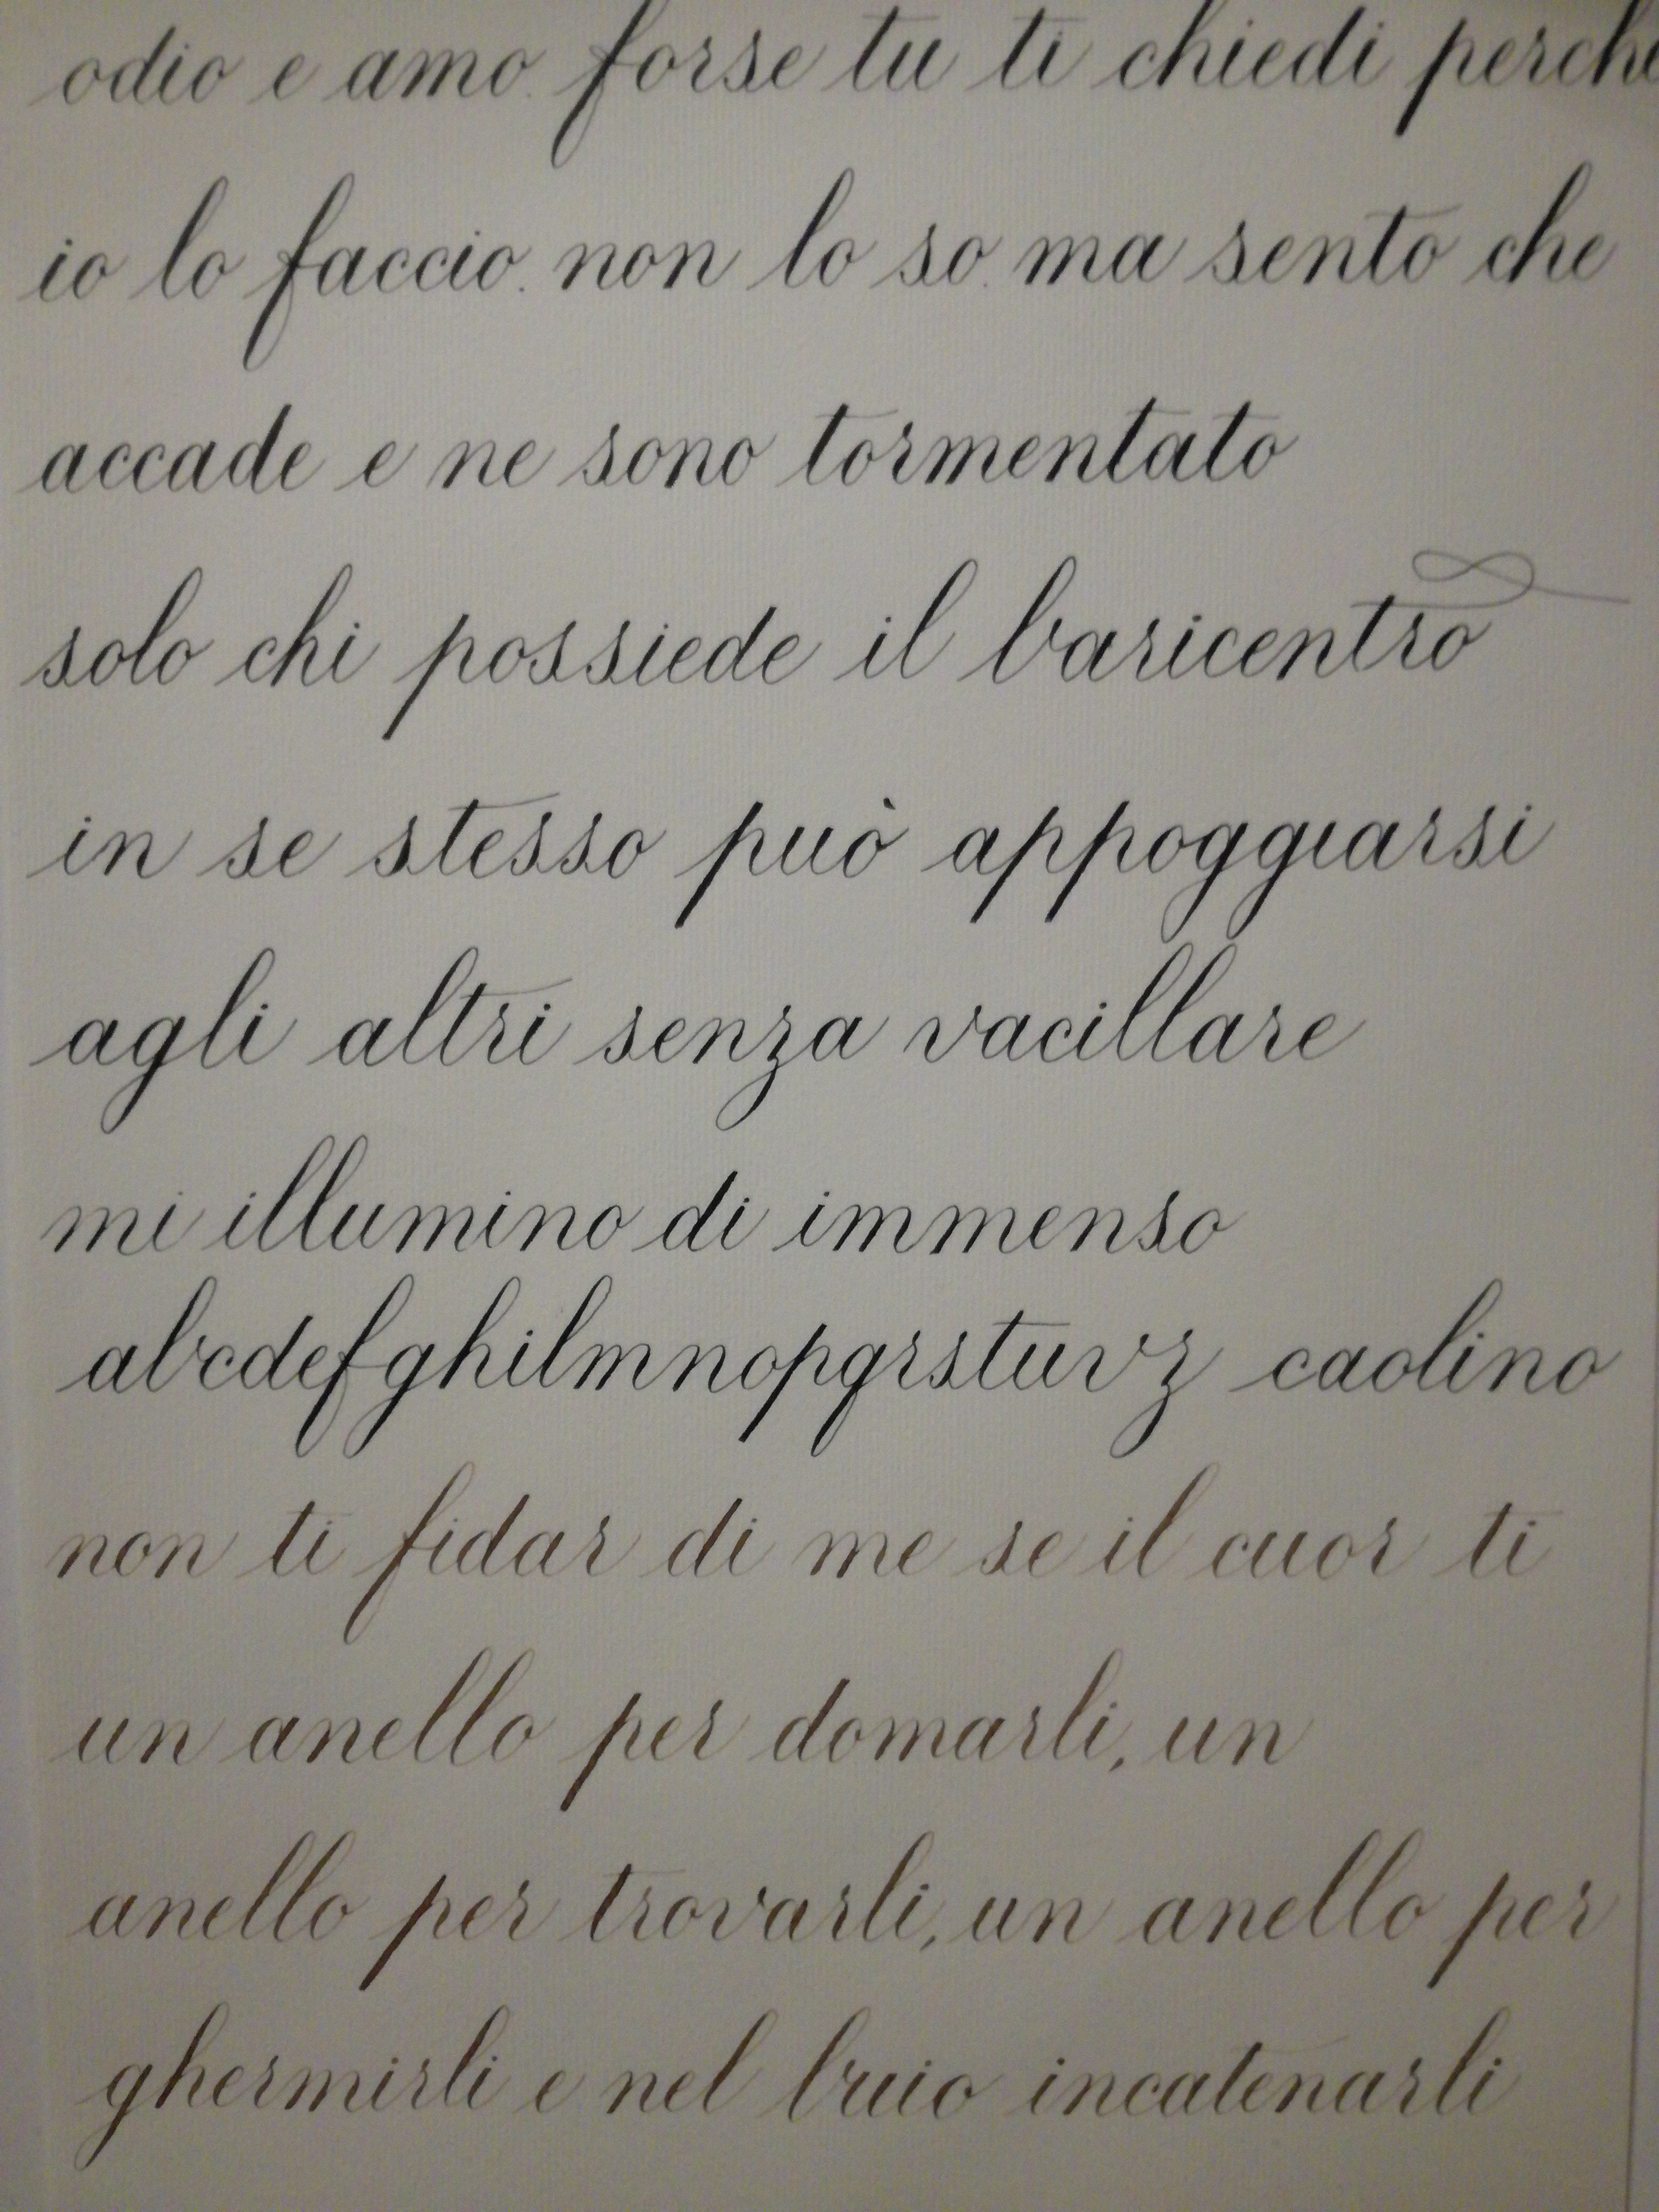 odio e amo. forse tu ti chiedi perche
io lo faccio. non lo so. ma sento che
accade e ne sono tormentato
solo chi possiede il baricentro
in se stesso può appoggiarsi
agli altri senza vacillare
mi illumino di immenso
abcdefghilmnopqrstuvz caolino
non ti fidar di me se il cuor ti
un anello per domarli, un
anello per trovarli, un anello per
ghermirli e nel buio incatenarli